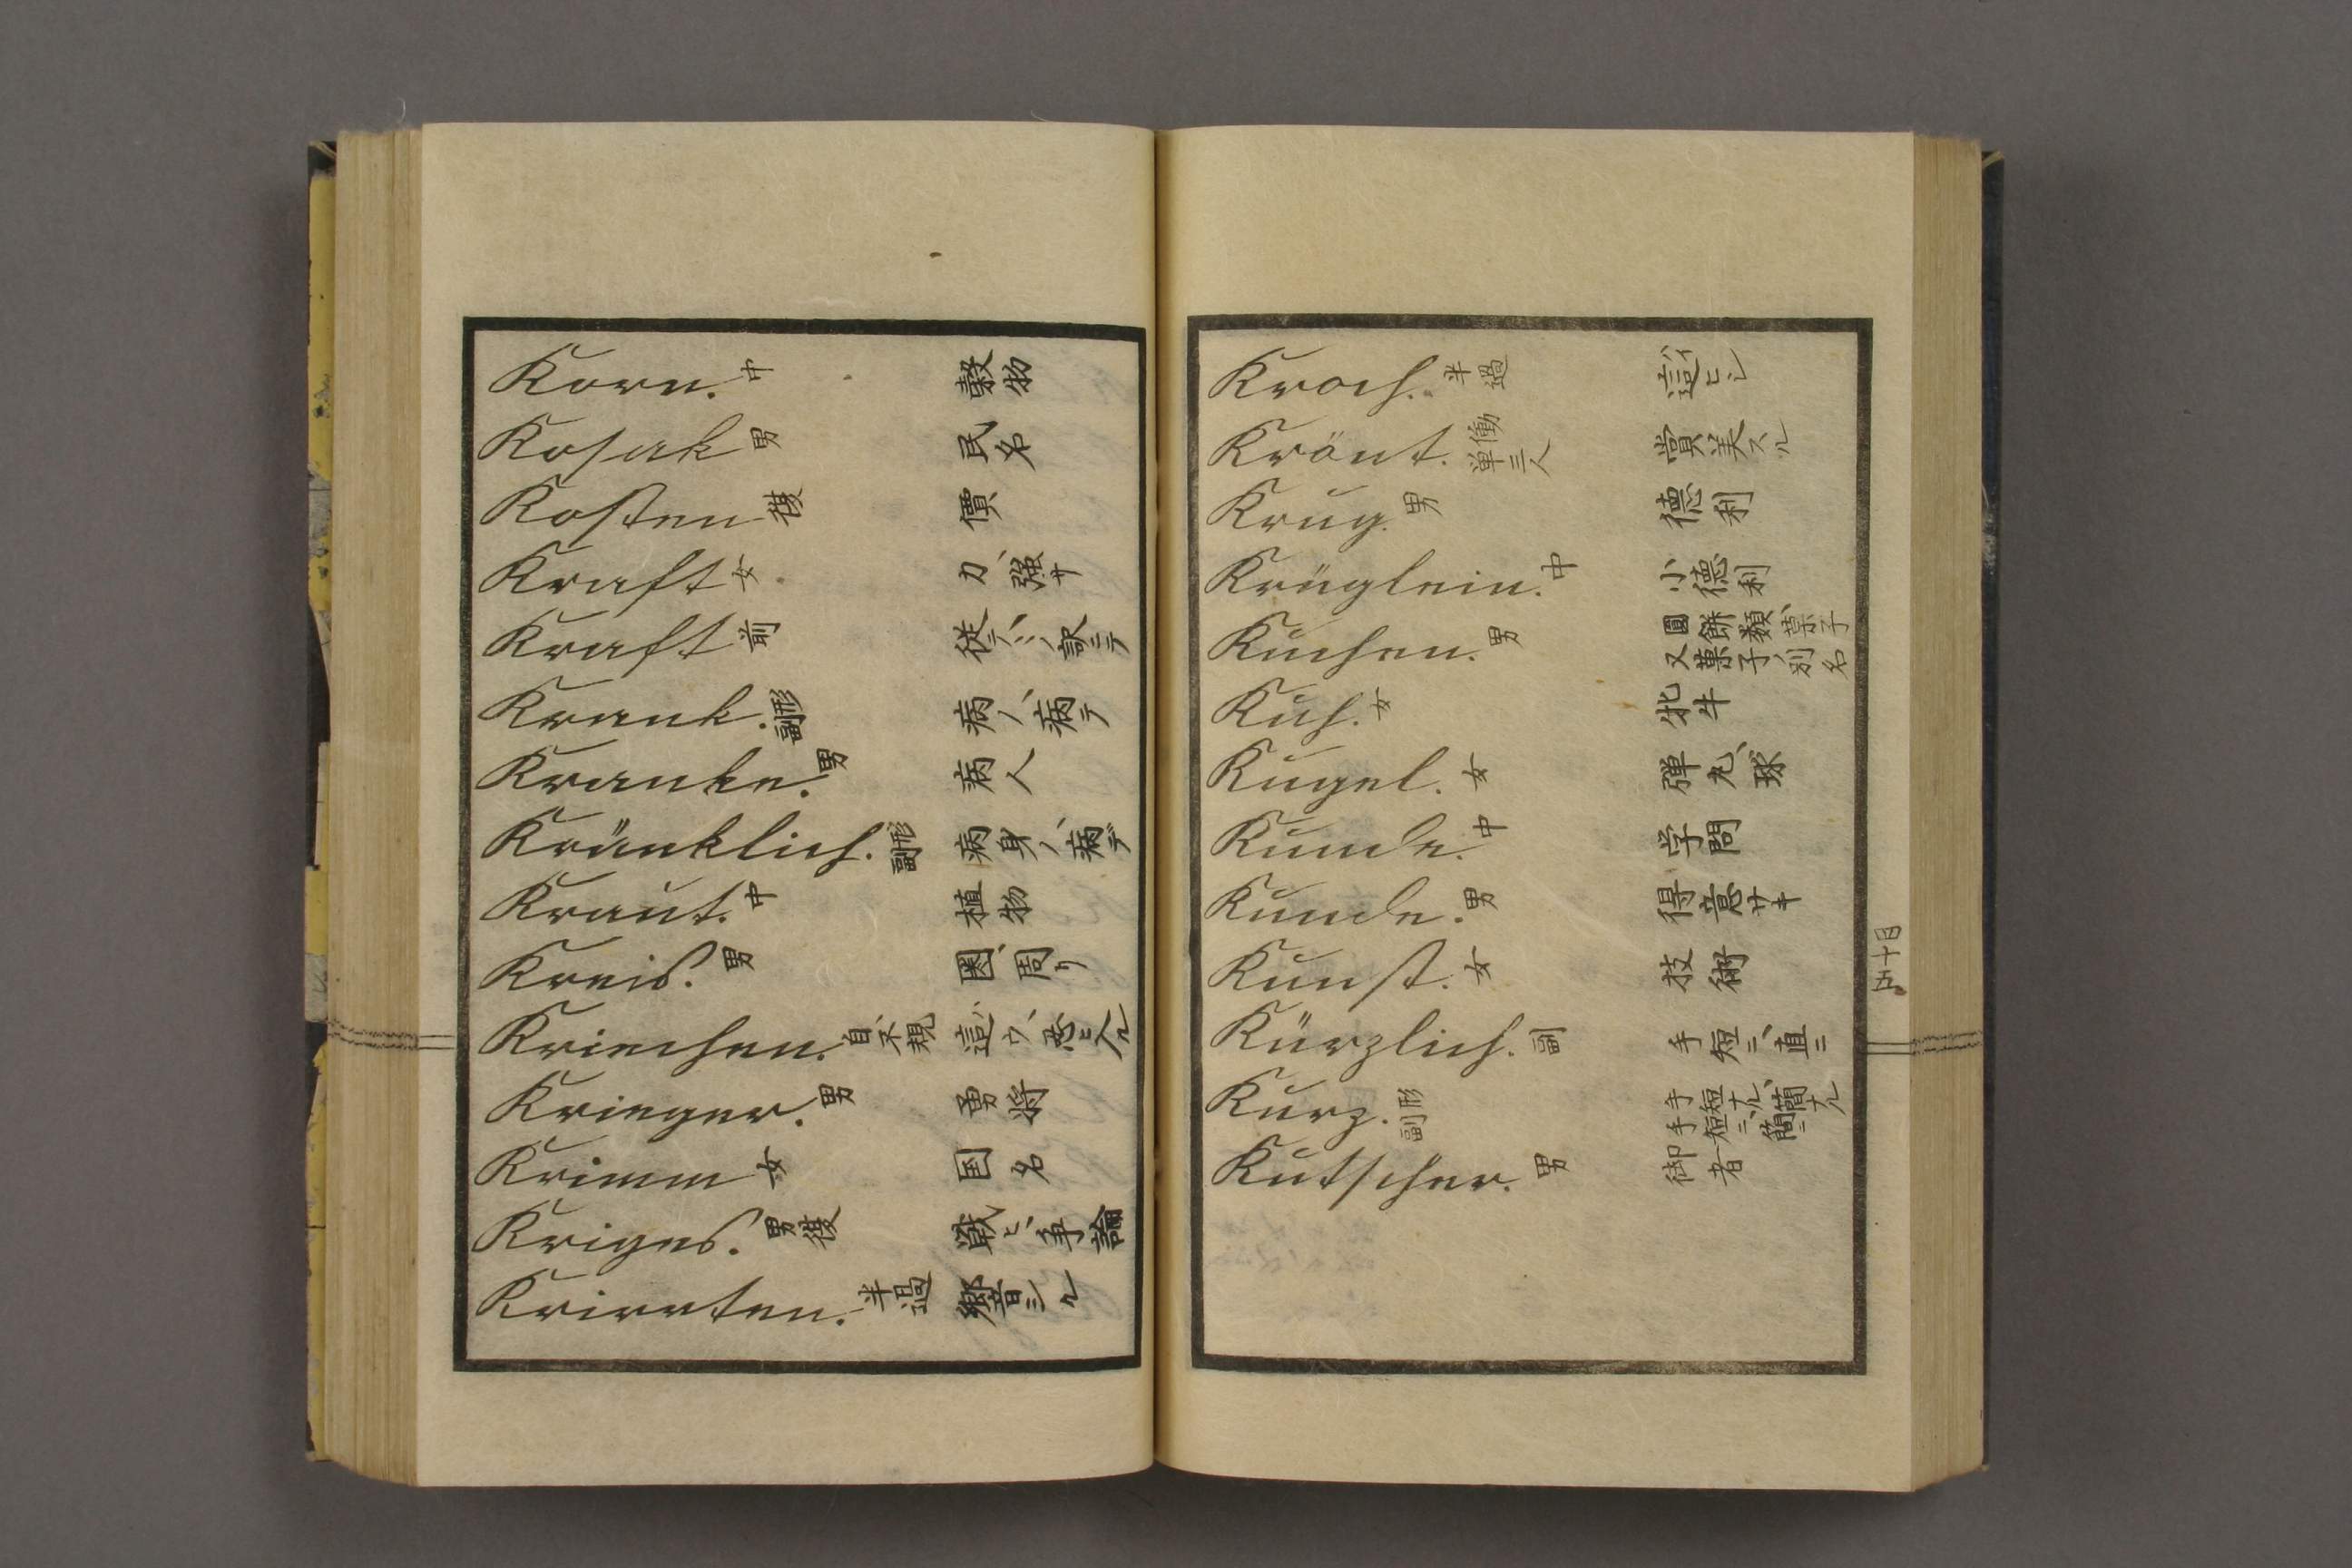 Korn. 中 穀物
Kosak 男 民名
Kosten 複 價
Kraft 女 力、強サ
Kraft 前
Krank. 形副 病ノ、病テ
Kranke. 男 病人
Kränklich. 形副 病身ノ、病デ
Kraut. 中 植物
Kreis. 男 圏、周リ
Kriechen. 自、不規
Krieger. 男 勇将
Krimm 女 国名
Kriges. 男複 戦ヒ、争論
Krirrten. 半過
Kroch. 半過 這ヒシ
Krönt. 働単三人 賞美スル
Krug. 男 徳利
Krüglein. 中 小徳利
Kuchen. 男 圓餅類、菓子
又菓子ノ別名
Kuh. 女 牝牛
Kugel. 女 弾丸、球
Kunde. 中 学問
Kunde. 男 得意サキ
Kunst. 女 技術
Kürzlich. 副 手短ニ、直ニ
Kurz. 形副 手短ナル、簡ナル
手短ニ、簡ニ
Kutscher. 男 御者
五十四